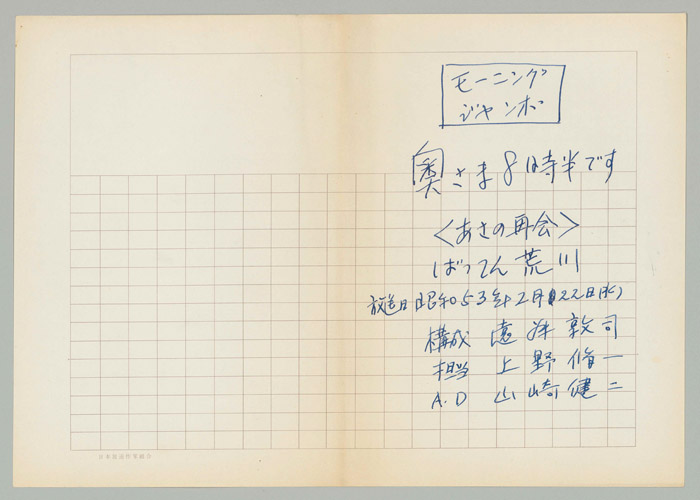 モーニング
ジャンボ
奥さま8時半です
<あさの再会>
ばってん荒川
放送日 昭和53年2月22日(水)
構成 遠井敦司
担当 上野修一
A.D 山崎健二